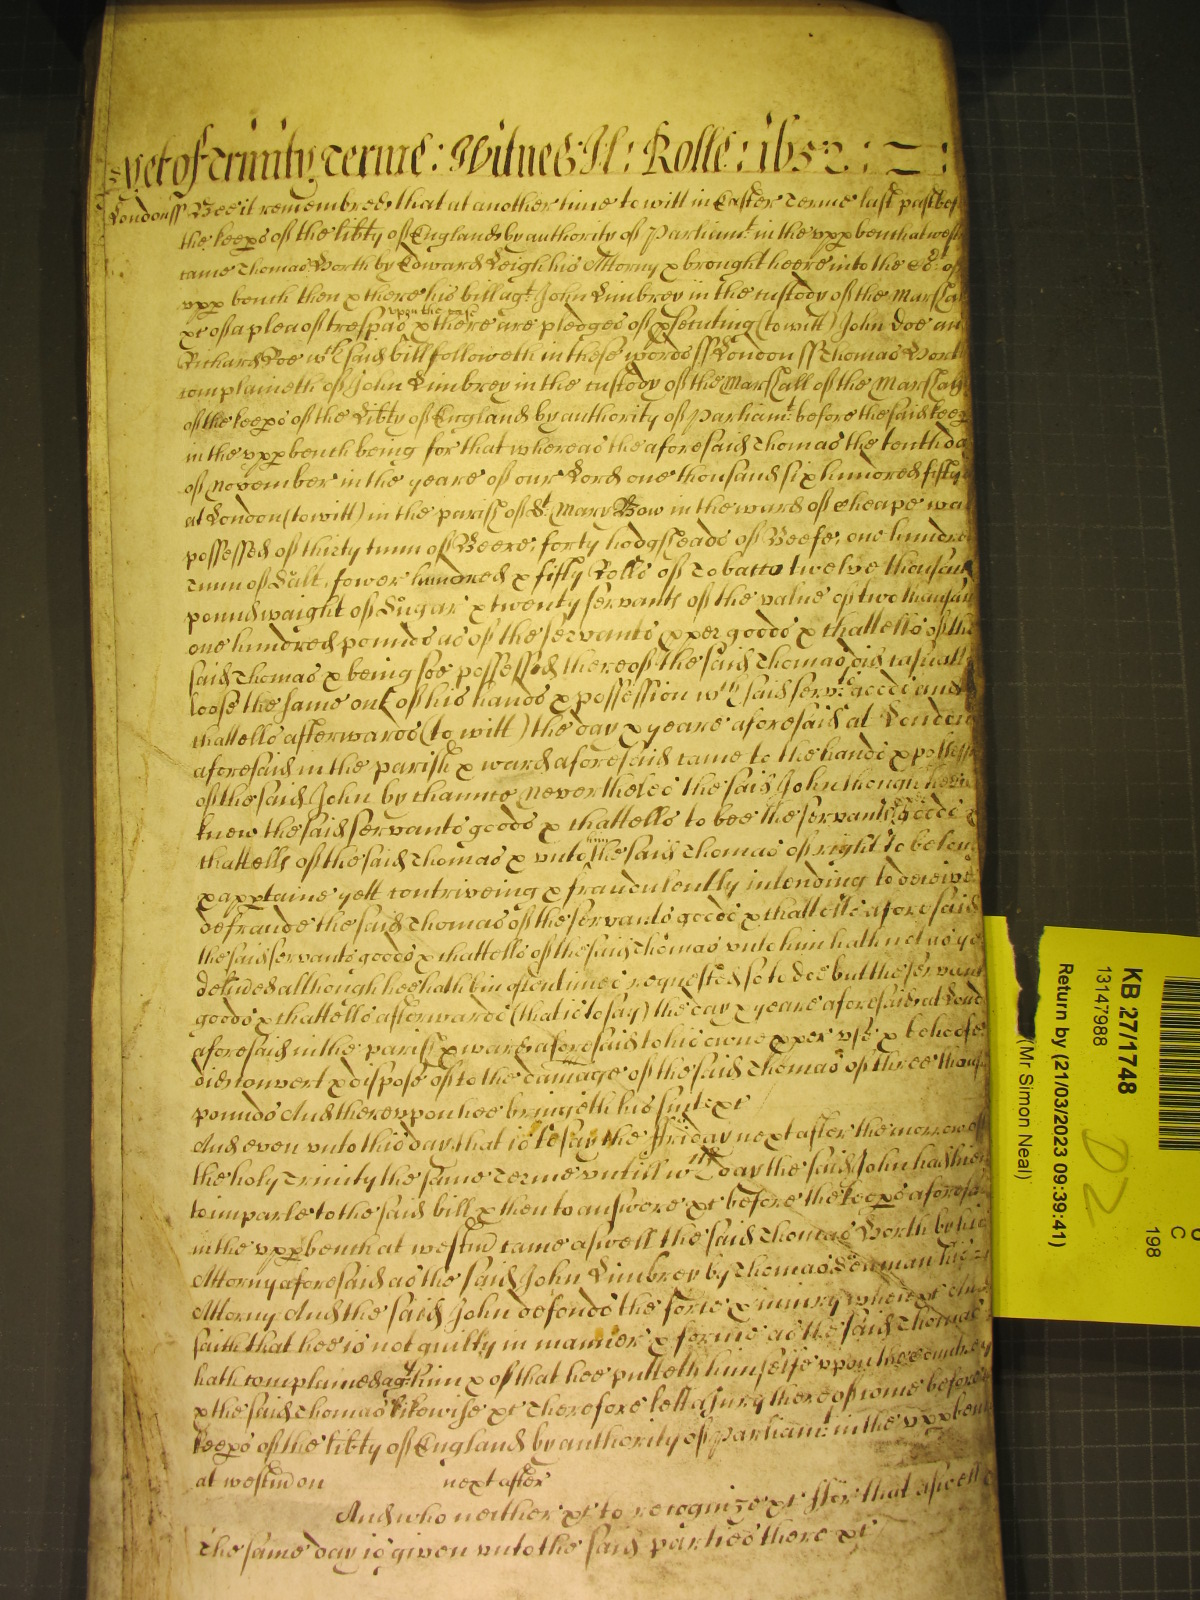 =yet of Trinity Terme: Witnes H: Rolle: 1652:
London ss Bee it remembred that at another time to witt in Easter Terme last past bef
the keeps of the libty of England by authority of Parliamt in the upp bench at westm
came Thomas North by Edward Leigh his Attorny & brought heere into the Cot of
upp bench then & there his bill agt John Limbrey in the custody of the Marshal
&c of a plea of trespas upon the case & there are pledges of psecuting (to witt) John Doe an
Richard Roe wch said bill followeth in these words ss London ss Thomas North
complaineth of John Limbrey in the custody of the Marshall of the Marshals
of the keeps of the Libty of England by authority of Parliamt before the said keep
in the upp bench being for that whereas the aforesaid Thomas the tenth da
of November in the yeare of our Lord one thousand six hundred fifty
at London (to witt) in the parish of St Mary Bow in the ward of Cheape wa
possessed of thirty tunn of Beere, forty hodgsheads of Beefe, one hundre
Tunn of Salt, fower hundred & fifty Rolls of Tobacco twelve thousan
pound waight of Sugar & twenty servants of the value of two thousan
one hundred pounds as of the servants pper goods & chattells of the
said Thomas & being soe possessed thereof the said Thomas did casuall
loose the same out of his hands & possession wch said servts goods and
chattells afterwards (to witt) the day & yeare aforesaid at London
aforesaid in the parish & ward aforesaid came to the hands & possess
of the said John by chance Neverthelес the said John though hee
knew the said servants goods & chattells to bee the servants goods &
chattells of the said Thomas & unto him the said Thomas of right to belon
& apptaine yett contriveing & fraudulently intending to deceive
defraude the said Thomas of the servants goods & chattells aforesaid
the said servants goods & chattells of the said Thomas unto him hath not as ye
delivded although hee hath bin oftentimes requested so to doe but the servant
goods & chattells afterwards (that is to say) the day & yeare aforesaid at Lond
aforesaid in the parish & ward aforesaid to his owne pper use & behoofe
did convert & dispose of to the damage of the said Thomas of three thous
pounds And thereupon hee bringeth his sute &c
And even unto this day that is to say the ffriday next after the morrow of
the holy Trinity the same Terme untill wch day the said John had
to imparle to the said bill & then to answere &c before the keeps aforesa
in the upp bench at westm came aswell the said Thomas North by his
Attorny aforesaid as the said John Limbrey by Thomas Seaman his
Attorny And the said John defends the force & iniury when &c And
saith that hee is not guilty in manner & forme as the said Thomas
hath complained agt him & of that hee putteth himselfe upon the Countrey
& the said Thomas likewise &c Therefore lett a Jury thereof come before
keeps of the libty of England by authority of Parliamt in the upp ben
at westm on next after
And who neither &c to recognize &c ffor that aswell
The same day is given unto the said parties there &c
KB 27/1748
13147988
Return by (21/03/2023 09:39:41)
(Mr Simon Neal)
D2
C
198